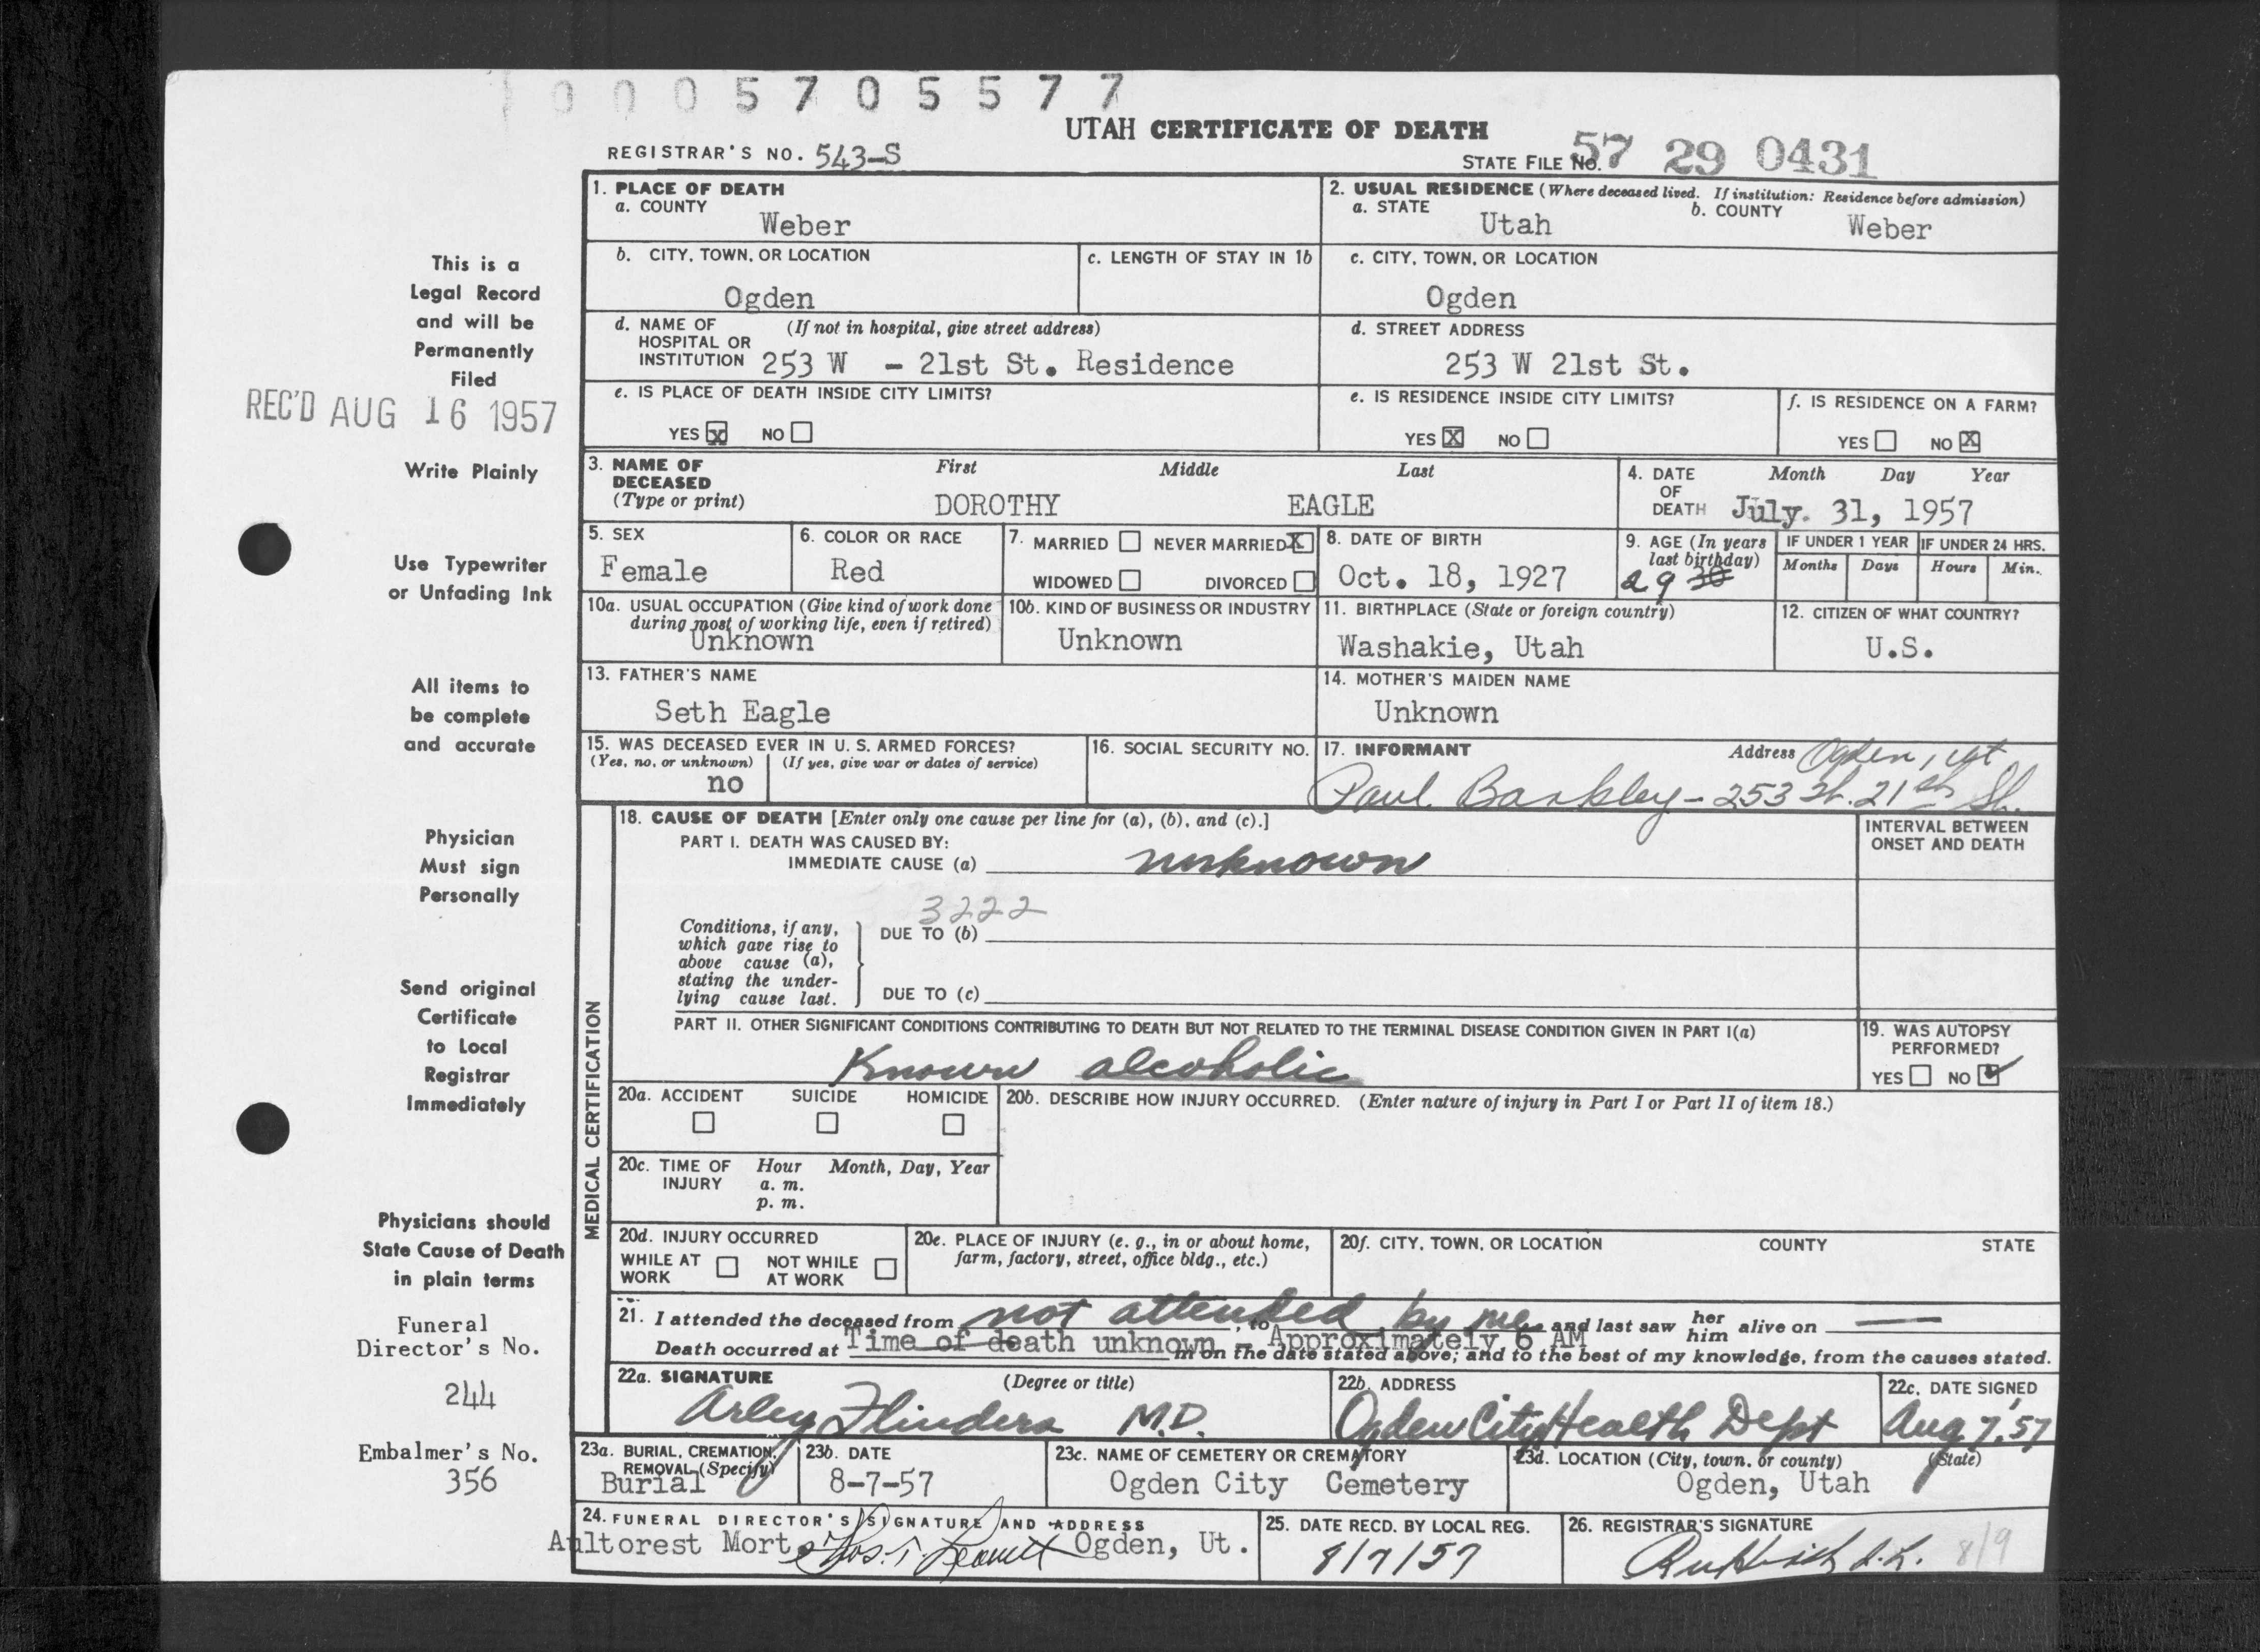 0005705577
UTAH CERTIFICATE OF DEATH
REGISTRAR'S NO. 543-S
STATE FILE No. 57 29 0431
1. PLACE OF DEATH
a. COUNTY
Weber
2. USUAL RESIDENCE (Where deceased lived. If institution: Residence before admission)
a. STATE b. COUNTY
Utah Weber
b. CITY, TOWN, OR LOCATION
Ogden
c. LENGTH OF STAY IN 1b
c. CITY, TOWN, OR LOCATION
Ogden
d. NAME OF (If not in hospital, give street address)
HOSPITAL OR
INSTITUTION 253 W - 21st St. Residence
d. STREET ADDRESS
253 W 21st St.
e. IS PLACE OF DEATH INSIDE CITY LIMITS?
YES X NO
e. IS RESIDENCE INSIDE CITY LIMITS?
YES X NO
f. IS RESIDENCE ON A FARM?
YES NO X
3. NAME OF First Middle Last
DECEASED
(Type or print) DOROTHY EAGLE
4. DATE Month Day Year
OF
DEATH July. 31, 1957
5. SEX
Female
6. COLOR OR RACE
Red
7. MARRIED NEVER MARRIED X
WIDOWED DIVORCED
8. DATE OF BIRTH
Oct. 18, 1927
9. AGE (In years
last birthday)
29 30
IF UNDER 1 YEAR
Months Days
IF UNDER 24 HRS.
Hours Min.
10a. USUAL OCCUPATION (Give kind of work done
during most of working life, even if retired)
Unknown
10b. KIND OF BUSINESS OR INDUSTRY
Unknown
11. BIRTHPLACE (State or foreign country)
Washakie, Utah
12. CITIZEN OF WHAT COUNTRY?
U.S.
13. FATHER'S NAME
Seth Eagle
14. MOTHER'S MAIDEN NAME
Unknown
15. WAS DECEASED EVER IN U. S. ARMED FORCES?
(Yes, no, or unknown) (If yes, give war or dates of service)
no
16. SOCIAL SECURITY NO.
17. INFORMANT Address Ogden, Ut
Paul Barkley - 253 W. 21st St.
MEDICAL CERTIFICATION
18. CAUSE OF DEATH [Enter only one cause per line for (a), (b), and (c).]
PART I. DEATH WAS CAUSED BY:
IMMEDIATE CAUSE (a) unknown
INTERVAL BETWEEN
ONSET AND DEATH
3222
Conditions, if any,
which gave rise to
above cause (a),
stating the under-
lying cause last.
DUE TO (b)
DUE TO (c)
PART II. OTHER SIGNIFICANT CONDITIONS CONTRIBUTING TO DEATH BUT NOT RELATED TO THE TERMINAL DISEASE CONDITION GIVEN IN PART I(a)
Known alcoholic
19. WAS AUTOPSY
PERFORMED?
YES NO ✓
20a. ACCIDENT SUICIDE HOMICIDE
20b. DESCRIBE HOW INJURY OCCURRED. (Enter nature of injury in Part I or Part II of item 18.)
20c. TIME OF Hour Month, Day, Year
INJURY a. m.
p. m.
20d. INJURY OCCURRED
WHILE AT NOT WHILE
WORK AT WORK
20e. PLACE OF INJURY (e. g., in or about home,
farm, factory, street, office bldg., etc.)
20f. CITY, TOWN, OR LOCATION COUNTY STATE
21. I attended the deceased from not attended, to by me and last saw her him alive on —
Death occurred at Time of death unknown - Approximately 6 AM m on the date stated above; and to the best of my knowledge, from the causes stated.
22a. SIGNATURE (Degree or title)
Arley Flinders M.D.
22b. ADDRESS
Ogden City Health Dept
22c. DATE SIGNED
Aug 7, 57
23a. BURIAL, CREMATION,
REMOVAL (Specify)
Burial
23b. DATE
8-7-57
23c. NAME OF CEMETERY OR CREMATORY
Ogden City Cemetery
23d. LOCATION (City, town, or county) (State)
Ogden, Utah
24. FUNERAL DIRECTOR'S SIGNATURE AND ADDRESS
Aultorest Mort. Ogden, Ut.
25. DATE RECD. BY LOCAL REG.
8/7/57
26. REGISTRAR'S SIGNATURE
8/9
This is a
Legal Record
and will be
Permanently
Filed
REC'D AUG 16 1957
Write Plainly
Use Typewriter
or Unfading Ink
All items to
be complete
and accurate
Physician
Must sign
Personally
Send original
Certificate
to Local
Registrar
Immediately
Physicians should
State Cause of Death
in plain terms
Funeral
Director's No.
244
Embalmer's No.
356